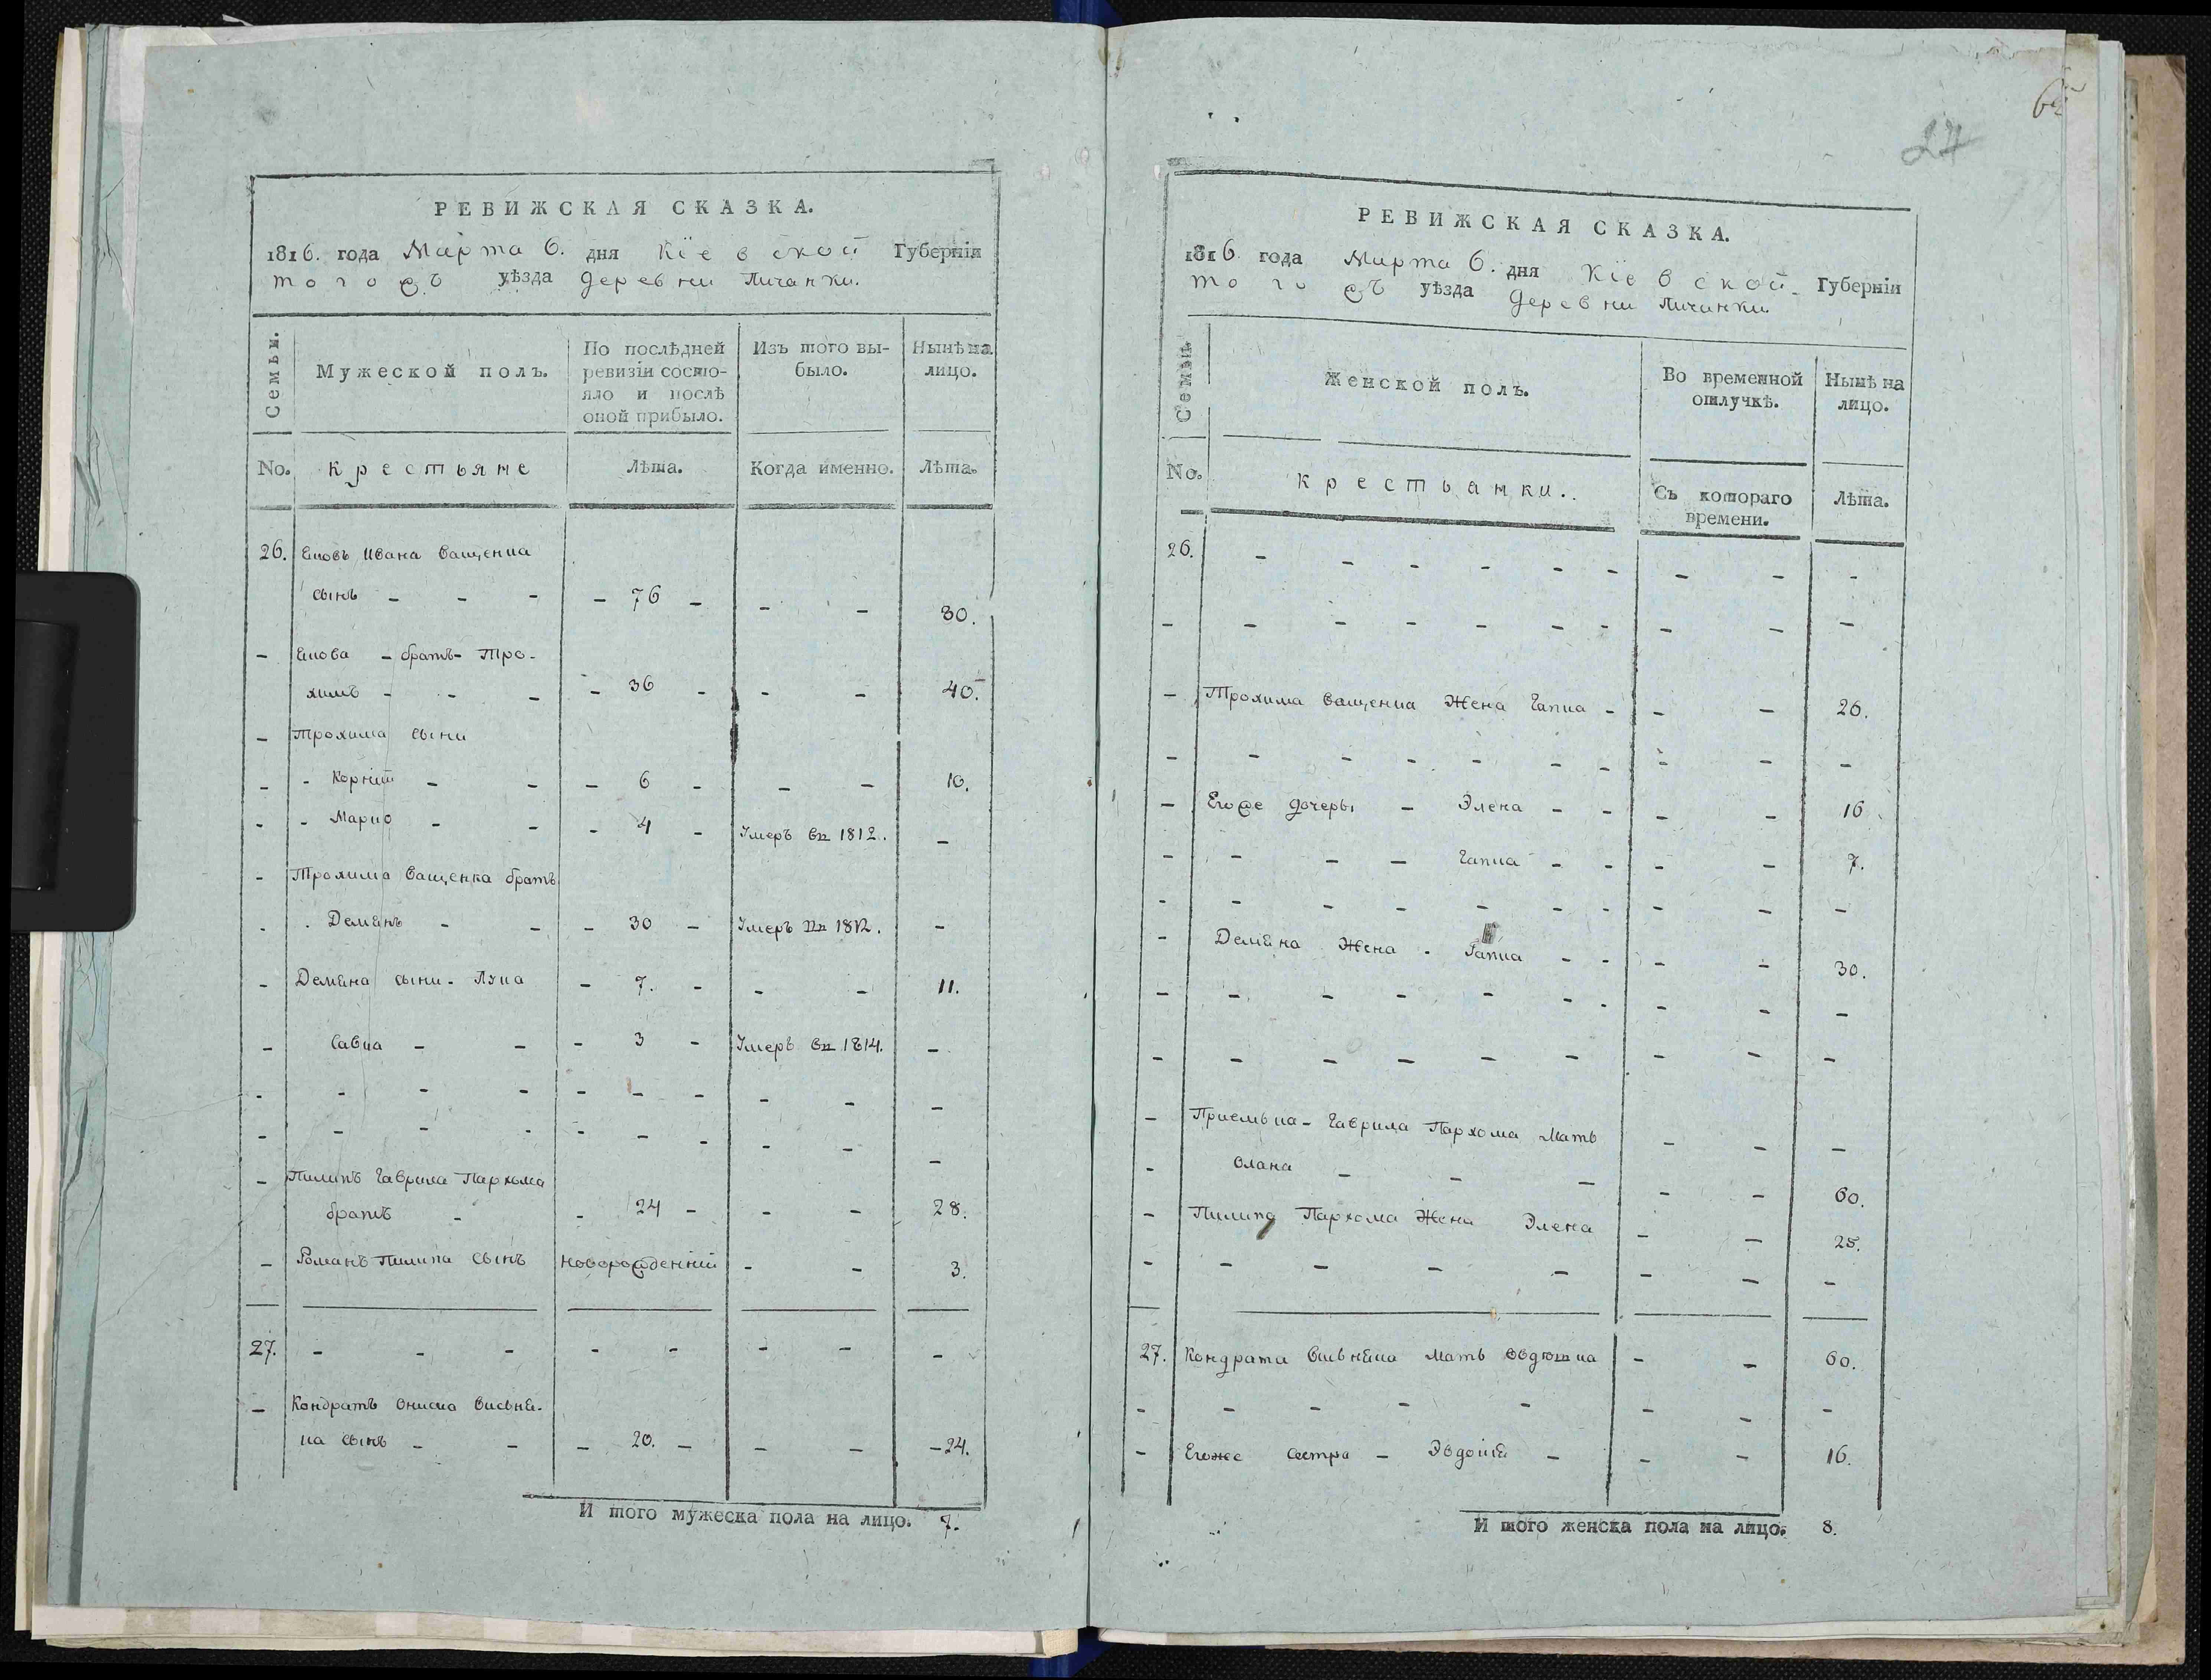 РЕВИЖСКАЯ СКАЗКА.
1816. года Марта 6. дня Кїевской Губернїи
тогожъ уѣзда деревни Личанки.
Семьи.
Мужеской полъ.
По послѣдней
ревизїи состо-
яло и послѣ
оной прибыло.
Изъ того вы-
было.
Нынѣ на
лицо.
No. крестьяне Лѣта. Когда именно. Лѣта.
26. Ивана Ващенка
сынъ - - - - 76 - - - 30.
- - братъ - Тро-
химъ - - - - 36 - - - 40.
- Трохима сыни
- - Корнїй - - - 6 - - - 10.
- - Марко - - - 4 - Умеръ въ 1812. -
- Трохима Ващенка братъ
- - Демянъ - - - 30 - Умеръ въ 1812. -
- Демяна сыни - Лука - 7. - - - 11.
- Савка - - - 3 - Умеръ въ 1814. -
- - - - - - - - - -
- - - - - - - - - -
- Пилипъ Гаврила Пархома
братъ - - 24 - - - 28.
- Романъ Пилипа сынъ новорожденнїй - - 3.
27. - - - - - - - -
- Кондратъ Ониска Висьня-
ка сынъ - - - 20. - - - - 24.
И того мужеска пола на лицо. 7.
27
РЕВИЖСКАЯ СКАЗКА.
1816 года Марта 6. дня Кїевской - Губернїи
тогожъ уѣзда деревни Личанки
Семьи.
Женской полъ.
Во временной
отлучкѣ.
Нынѣ на
лицо.
No. крестьянки..
Съ котораго
времени.
Лѣта.
26. - - - - - - - - -
- - - - - - - - - -
- Трохима Ващенка Жена Гапка - - - 26.
- - - - - - - - - -
- Егоже дочеры - Элена - - - - 16.
- - - - Гапка - - - - 7.
- - - - - - - - - -
- Демяна Жена - Гапка - - - - 30.
- - - - - - - - - -
- - - - - - - - -
- Приемька - Гаврила Пархома Мать - - -
- Олана - - - - - 60.
- Пилипа Пархома Жена Элена - - 25.
- - - - - - - -
27. Кондрата Висьняка Мать - - 60.
- - - - - - - -
- Егоже сестра - - - - 16.
И того женска пола на лицо. 8.